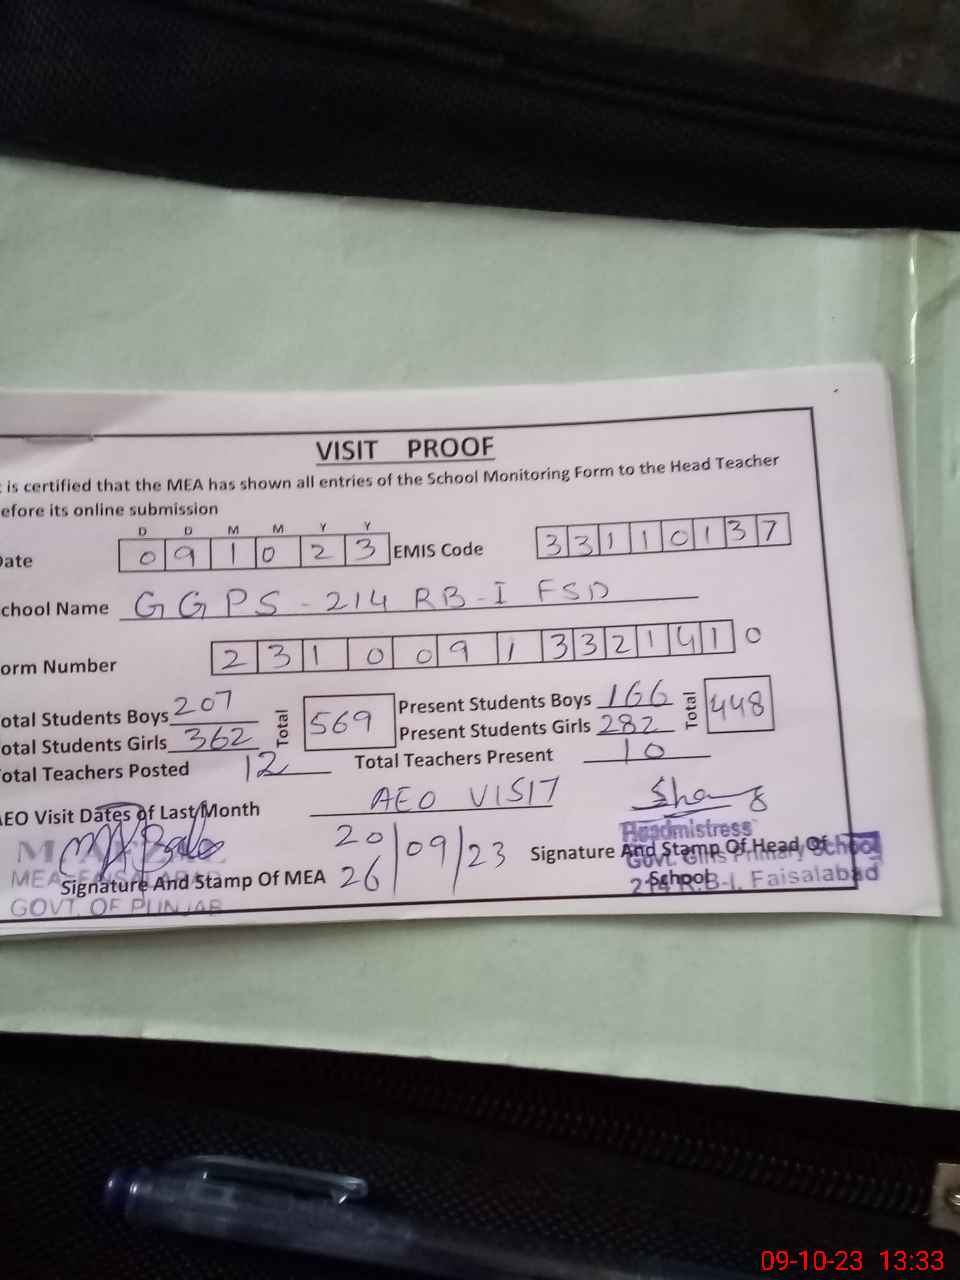 VISIT PROOF
is certified that the MEA has shown all entries of the School Monitoring Form to the Head Teacher
efore its online submission
D D M M Y Y
ate 0 9 1 0 2 3 EMIS Code 3 3 1 1 0 1 3 7
chool Name GGPS - 214 RB - I FSD
orm Number 2 3 1 0 0 9 1 3 3 2 1 4 1 0
otal Students Boys 207 Total 569 Present Students Boys 166 Total 448
otal Students Girls 362 Present Students Girls 282
otal Teachers Posted 12 Total Teachers Present 10
AEO Visit Dates of Last Month AEO VISIT
20
26 /09/23
Headmistress
Signature And Stamp Of Head Of School
Govt. Girls Primary School
214 R.B-I, Faisalabad
Signature And Stamp Of MEA
MEA FAISALABAD
GOVT. OF PUNJAB
09-10-23 13:33